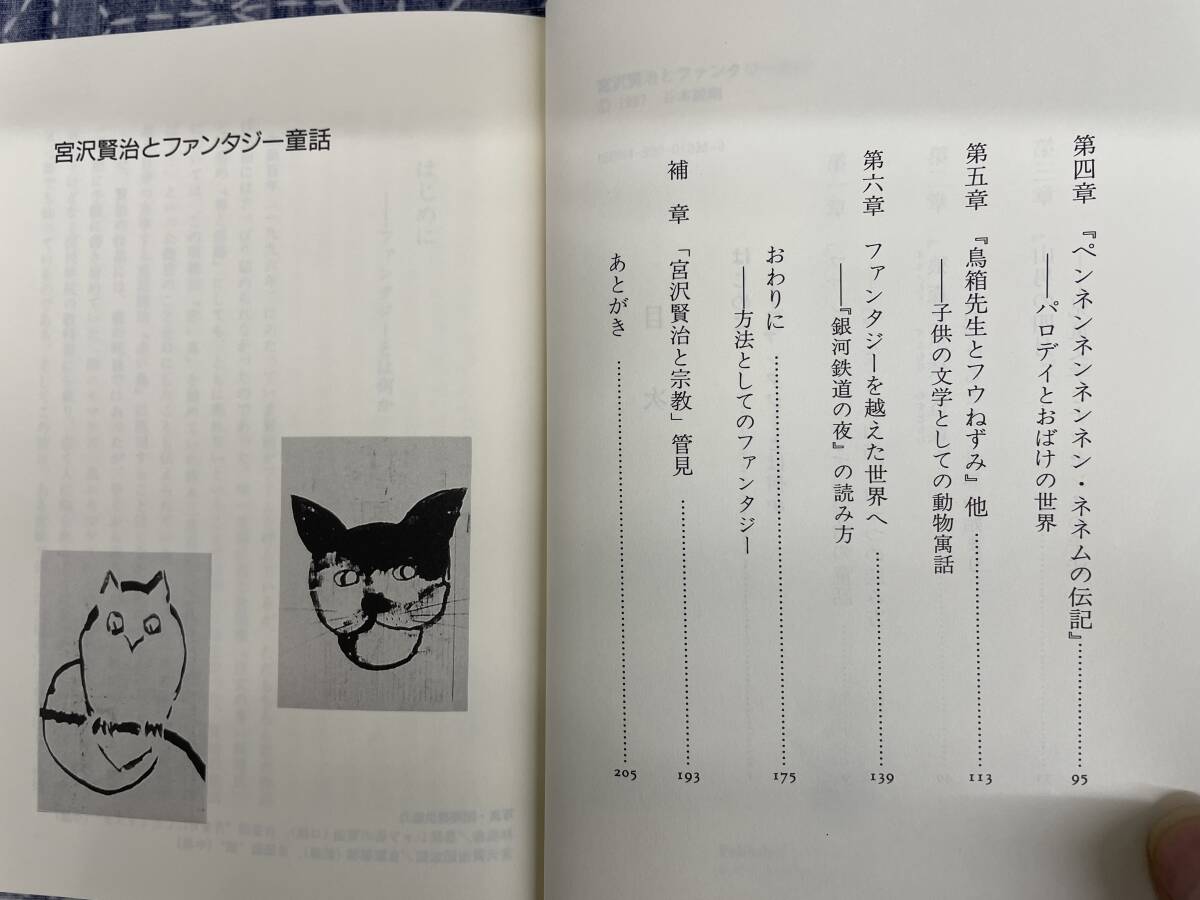 第四章 『ペンネンネンネンネン・ネネムの伝記』 95
――パロデイとおばけの世界
第五章 『鳥箱先生とフウねずみ』他 113
――子供の文学としての動物寓話
第六章 ファンタジーを越えた世界へ 139
――『銀河鉄道の夜』の読み方
おわりに 175
――方法としてのファンタジー
補章 「宮沢賢治と宗教」管見 193
あとがき 205
宮沢賢治とファンタジー童話